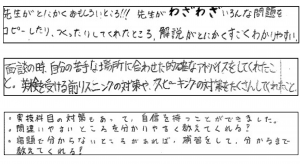 先生がとにかくおもしろいところ!!! 先生がわざわざいろんな問題を
コピーしたり、つくったりしてくれたところ、解説がとにかくすごくわかりやすい。
面談の時、自分の苦手な場所に合わせた的確なアドバイスをしてくれたこ
と。英検を受ける前リスニングの対策や、スピーキングの対策をたくさんしてくれたこと
・実技科目の対策もあって、自信を持つことができました。
・間違いやすいところを分かりやすく教えてくれる?
・宿題で分からないところがあれば、補習をして、分かるまで
教えてくれる!